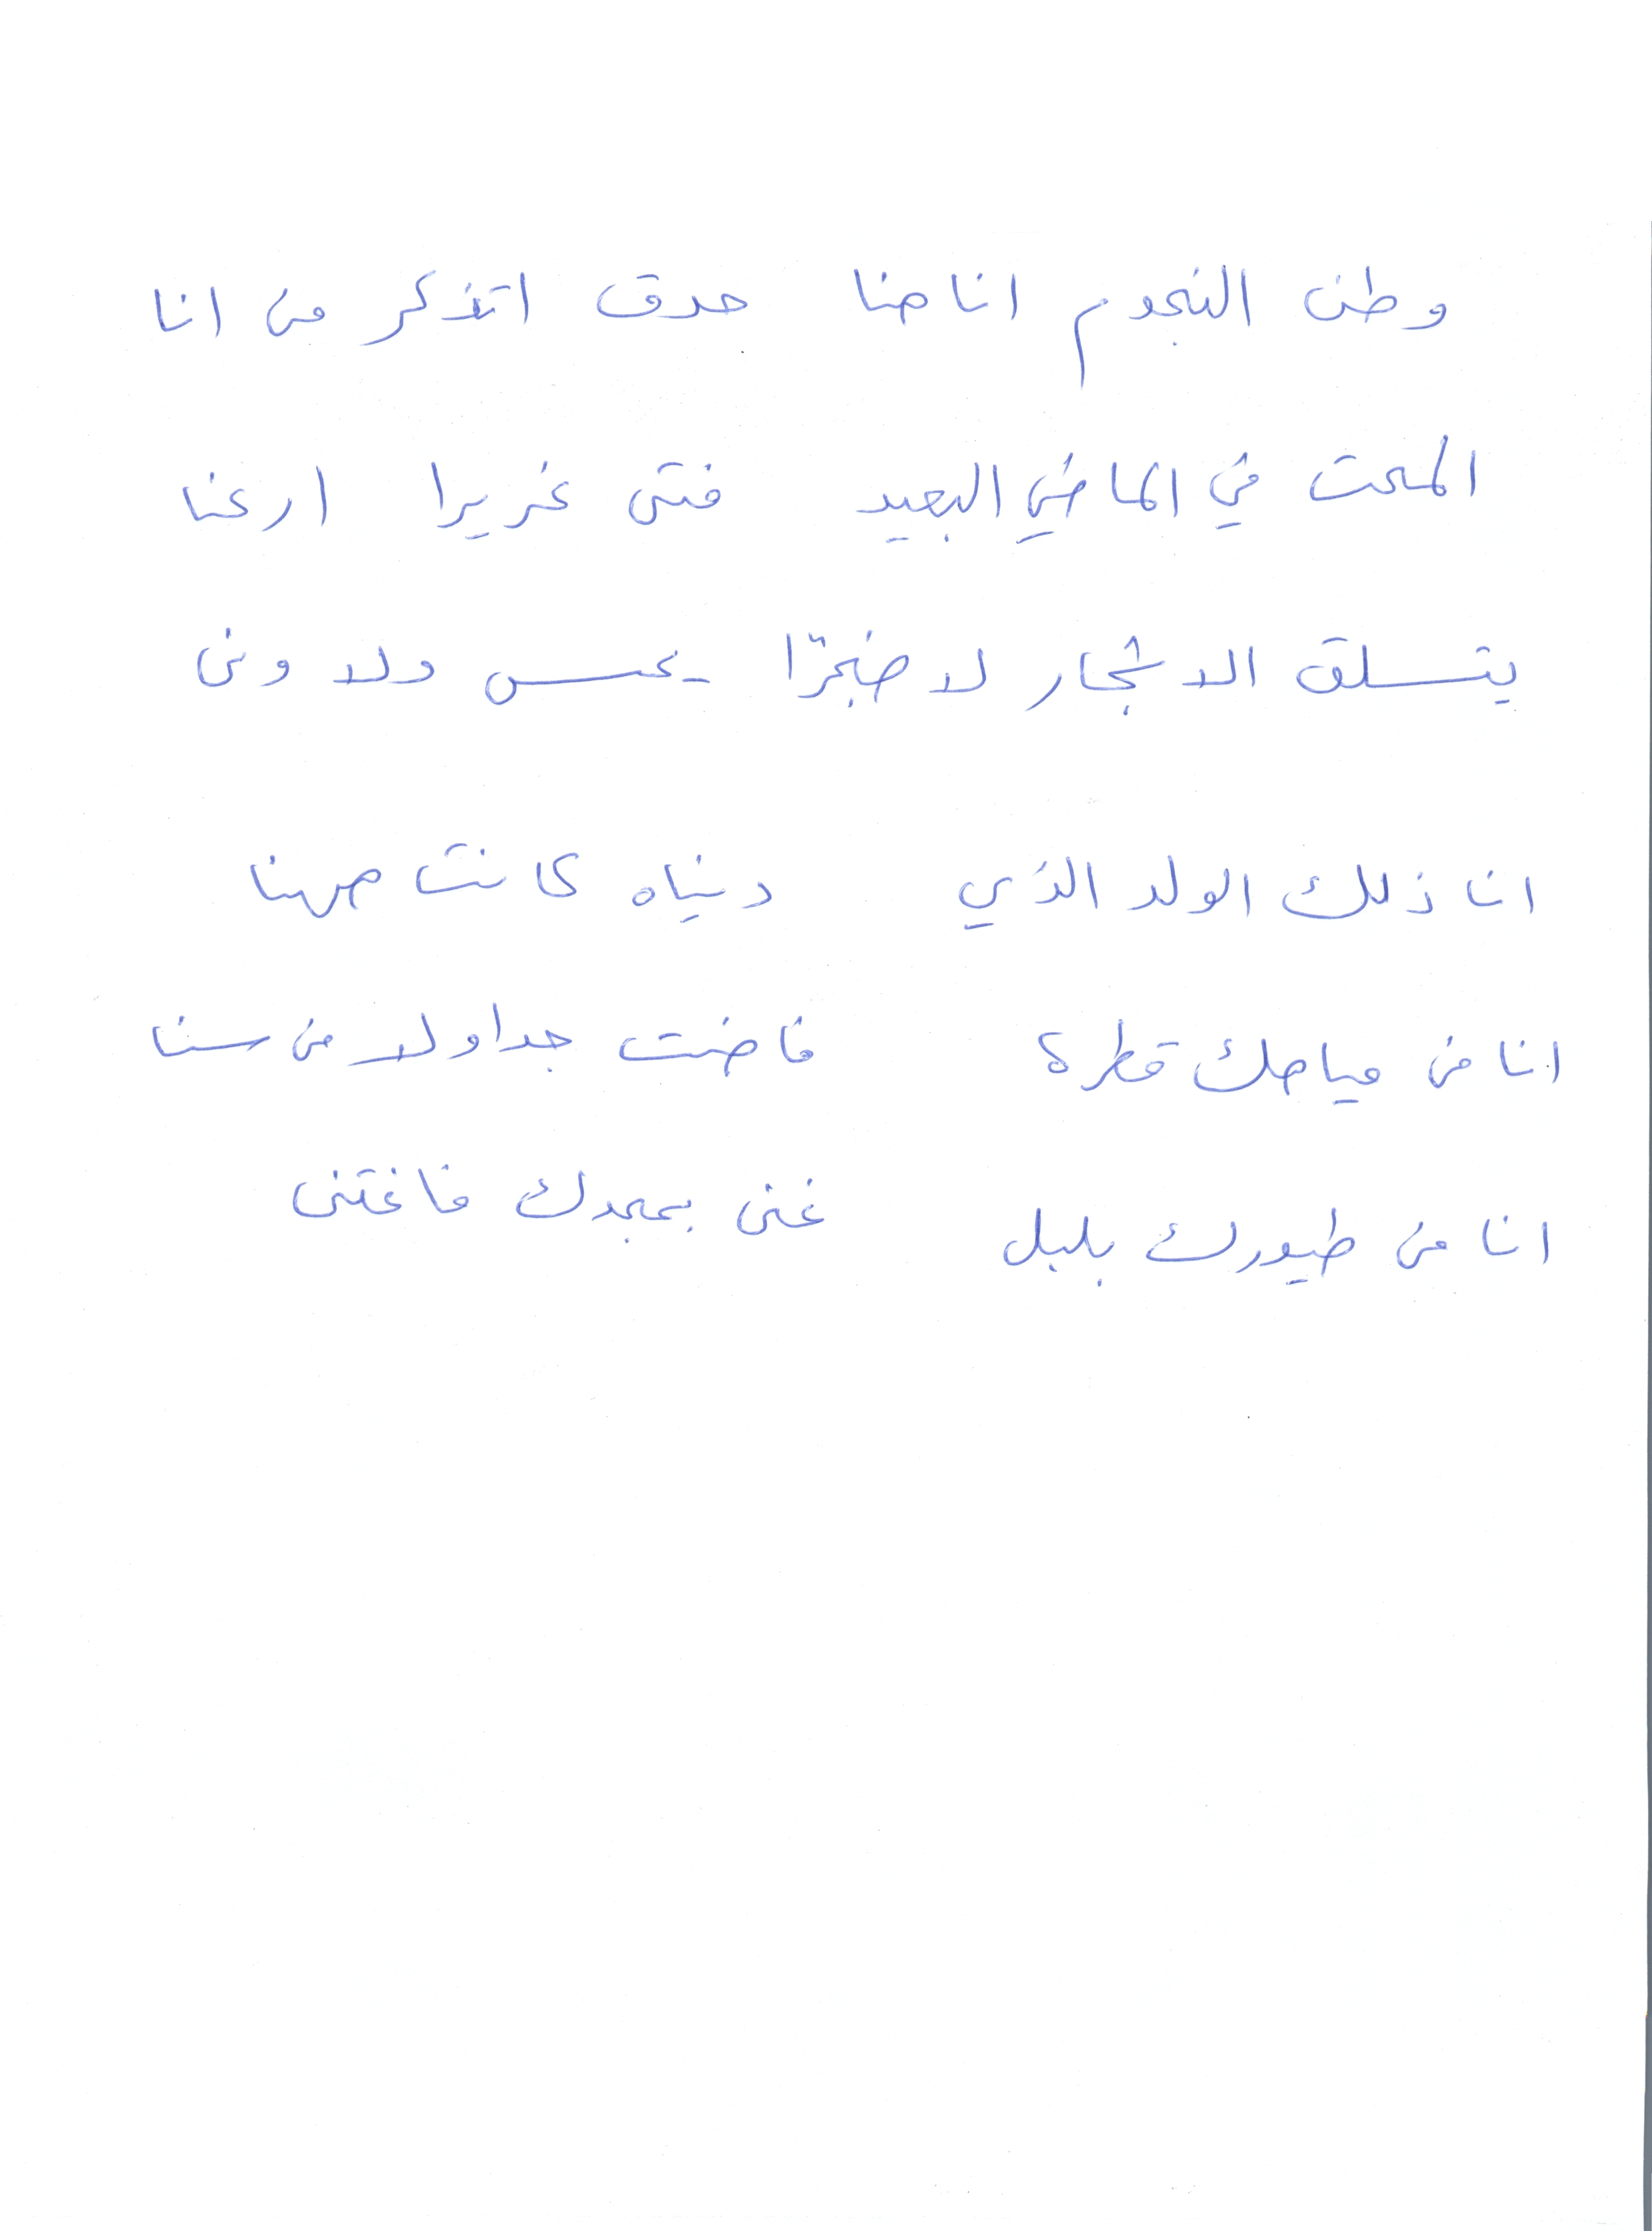 وطن النجوم انا هنا حدق اتذكر من انا
المحت في الماضي البعيد فتى غريرا ارعنا
يتسلق الاشجار لا ضجرًا يحس ولا ونى
انا ذلك الولد الذي دنياه كانت ههنا
انا من مياهك قطرة فاضت جداول من سنا
انا من طيورك بلبل غنى بمجدك فاغتنى